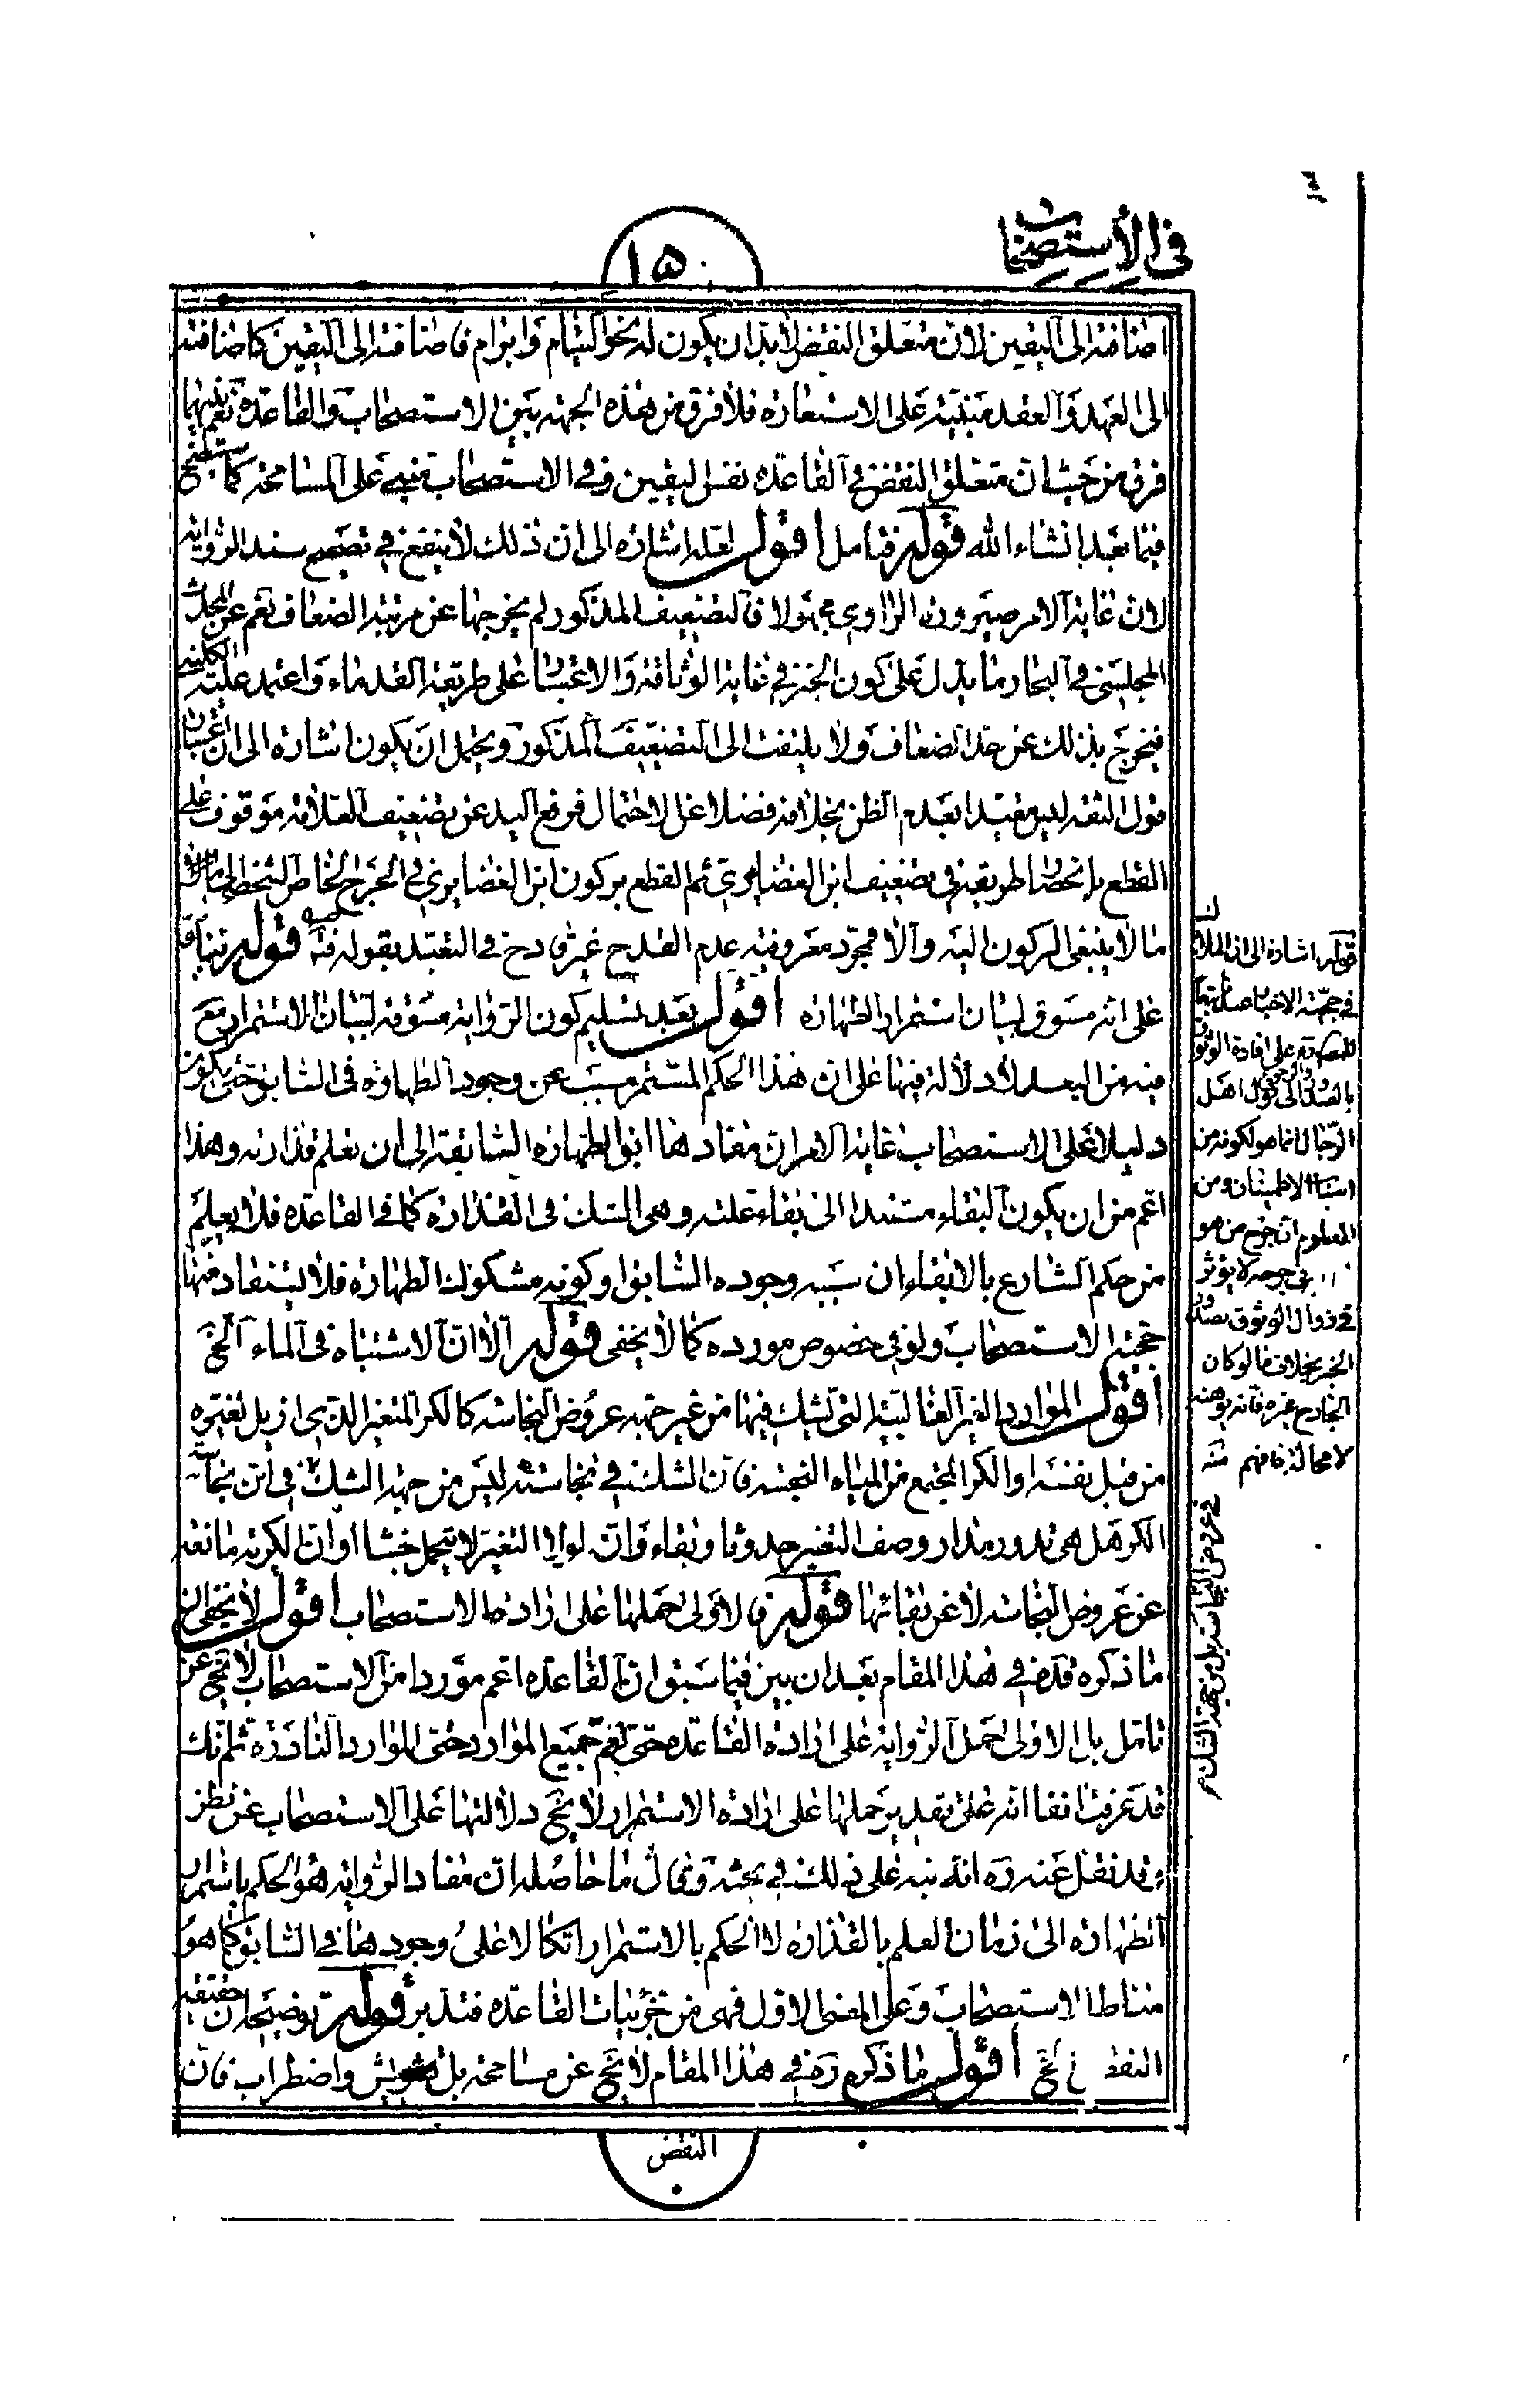 في الاستصحاب
١٥٠
اضافته الى اليقين لان متعلق النقض لابد ان يكون له نحو التيام وابرام فاضافته الى اليقين كاضافته
الى العهد والعقد مبنية على الاستعارة فلا فرق من هذه الجهة بين الاستصحاب والقاعدة نعم بينهما
فرق من حيث ان متعلق النقض في القاعدة نفس اليقين وفي الاستصحاب مبني على المسامحة كما ستطلع
فيما بعد انشاء الله قوله فتامل اقول لعله اشارة الى ان ذلك لا ينفع في تصحيح سند الرواية
لان غاية الامر صيرورة الراوي مجهولا فالتضعيف المذكور لم يخرجها عن مرتبة الضعاف نعم عن المحدث
المجلسي في البحار ما يدل على كون الخبر في غاية الوثاقة والاعتبار على طريقة القدماء واعتمد عليه الكليني
فيخرج بذلك عن حد الضعاف ولا يلتفت الى التضعيف المذكور ويحتمل ان يكون اشارة الى ان اعتبار
قول الثقة ليس مقيدا بعدم الظن بخلافه فضلا عن الاحتمال فرفع اليد عن تضعيف العلامة موقوف على
القطع بانحصار طريقه في تضعيف ابن الغضايري ثم القطع بركون ابن الغضايري في الجرح الخاص الشخصي الى
ما لا ينبغي الركون اليه والا فمجرد معروفيته بعدم القدح غير قادح في التعبد بقوله قوله بناء
على انه مسوق لبيان استمرار الطهارة اقول بعد تسليم كون الرواية مسوقة لبيان الاستمرار مع
فيه من البعد لا دلالة فيها على ان هذا الحكم المستمر مسبب عن وجود الطهارة في السابق حتى يكون
دليلا على الاستصحاب غاية الامر ان مفادها ابق الطهارة السابقة الى ان تعلم قذارته وهذا
اعم من ان يكون البقاء مستندا الى بقاء علته وهي الشك في القذارة كما في القاعدة فلا يعلم
من حكم الشارع بالابقاء ان سببه وجوده السابق او كونه مشكوك الطهارة فلا يستفاد منها
حجية الاستصحاب ولو في خصوص مورده كما لا يخفى قوله الا ان الاشتباه في الماء الخ
اقول الموارد الغير الغالبية التي يشك فيها من غير جهة عروض النجاسة كالكر المتغير الذي ازيل تغيره
من قبل نفسه او الكر المجتمع من المياه النجسة فان الشك في نجاسته ليس من جهة الشك في ان نجاسة
الكر هل هي تدور مدار وصف التغير حدوثا وبقاء وان لواذا التغير لا يحمل خبثا او ان الكرية مانعة
عن عروض النجاسة لا عن بقائها قوله فالاولى حملها على ارادة الاستصحاب اقول لا يخفى ان
ما ذكره قده في هذا المقام بعد ان بين فيما سبق ان القاعدة اعم موردا من الاستصحاب لا يخ عن
تامل بل الاولى حمل الرواية على ارادة القاعدة حتى تعم جميع الموارد حتى الموارد النادرة ثم انك
قد عرفت انفا انه على تقدير حملها على ارادة الاستمرار لا يخ دلالتها على الاستصحاب عن نظر
وقد نقل عنه ره انه نبه على ذلك في بحثه وقال ما حاصله ان مفاد الرواية هو الحكم باستمرار
الطهارة الى زمان العلم بالقذارة لا الحكم بالاستمرار اتكالا على وجودها في السابق كما هو
مناط الاستصحاب وعلى المعنى الاول فهي من جزئيات القاعدة فتدبر قوله توضيحه ان حقيقة
النقض الخ اقول ما ذكره ره في هذا المقام لا يخ عن مسامحة بل تشويش واضطراب فان
النقض
قوله اشارة الى ان الملاك
في حجية الاخبار
على افادة الوثوق
بالصدور والرجوع الى قول اهل
الرجال انما هو لكونه من
اسباب الاطمينان ومن
المعلوم ان جرح من هو
في جرحه لا يؤثر
في زوال الوثوق بصدور
الخبر بخلاف ما لو كان
الجارح غيره فانه يوهنه
لا محالة فافهم منه
في عروض النجاسة بل من جهة الشك